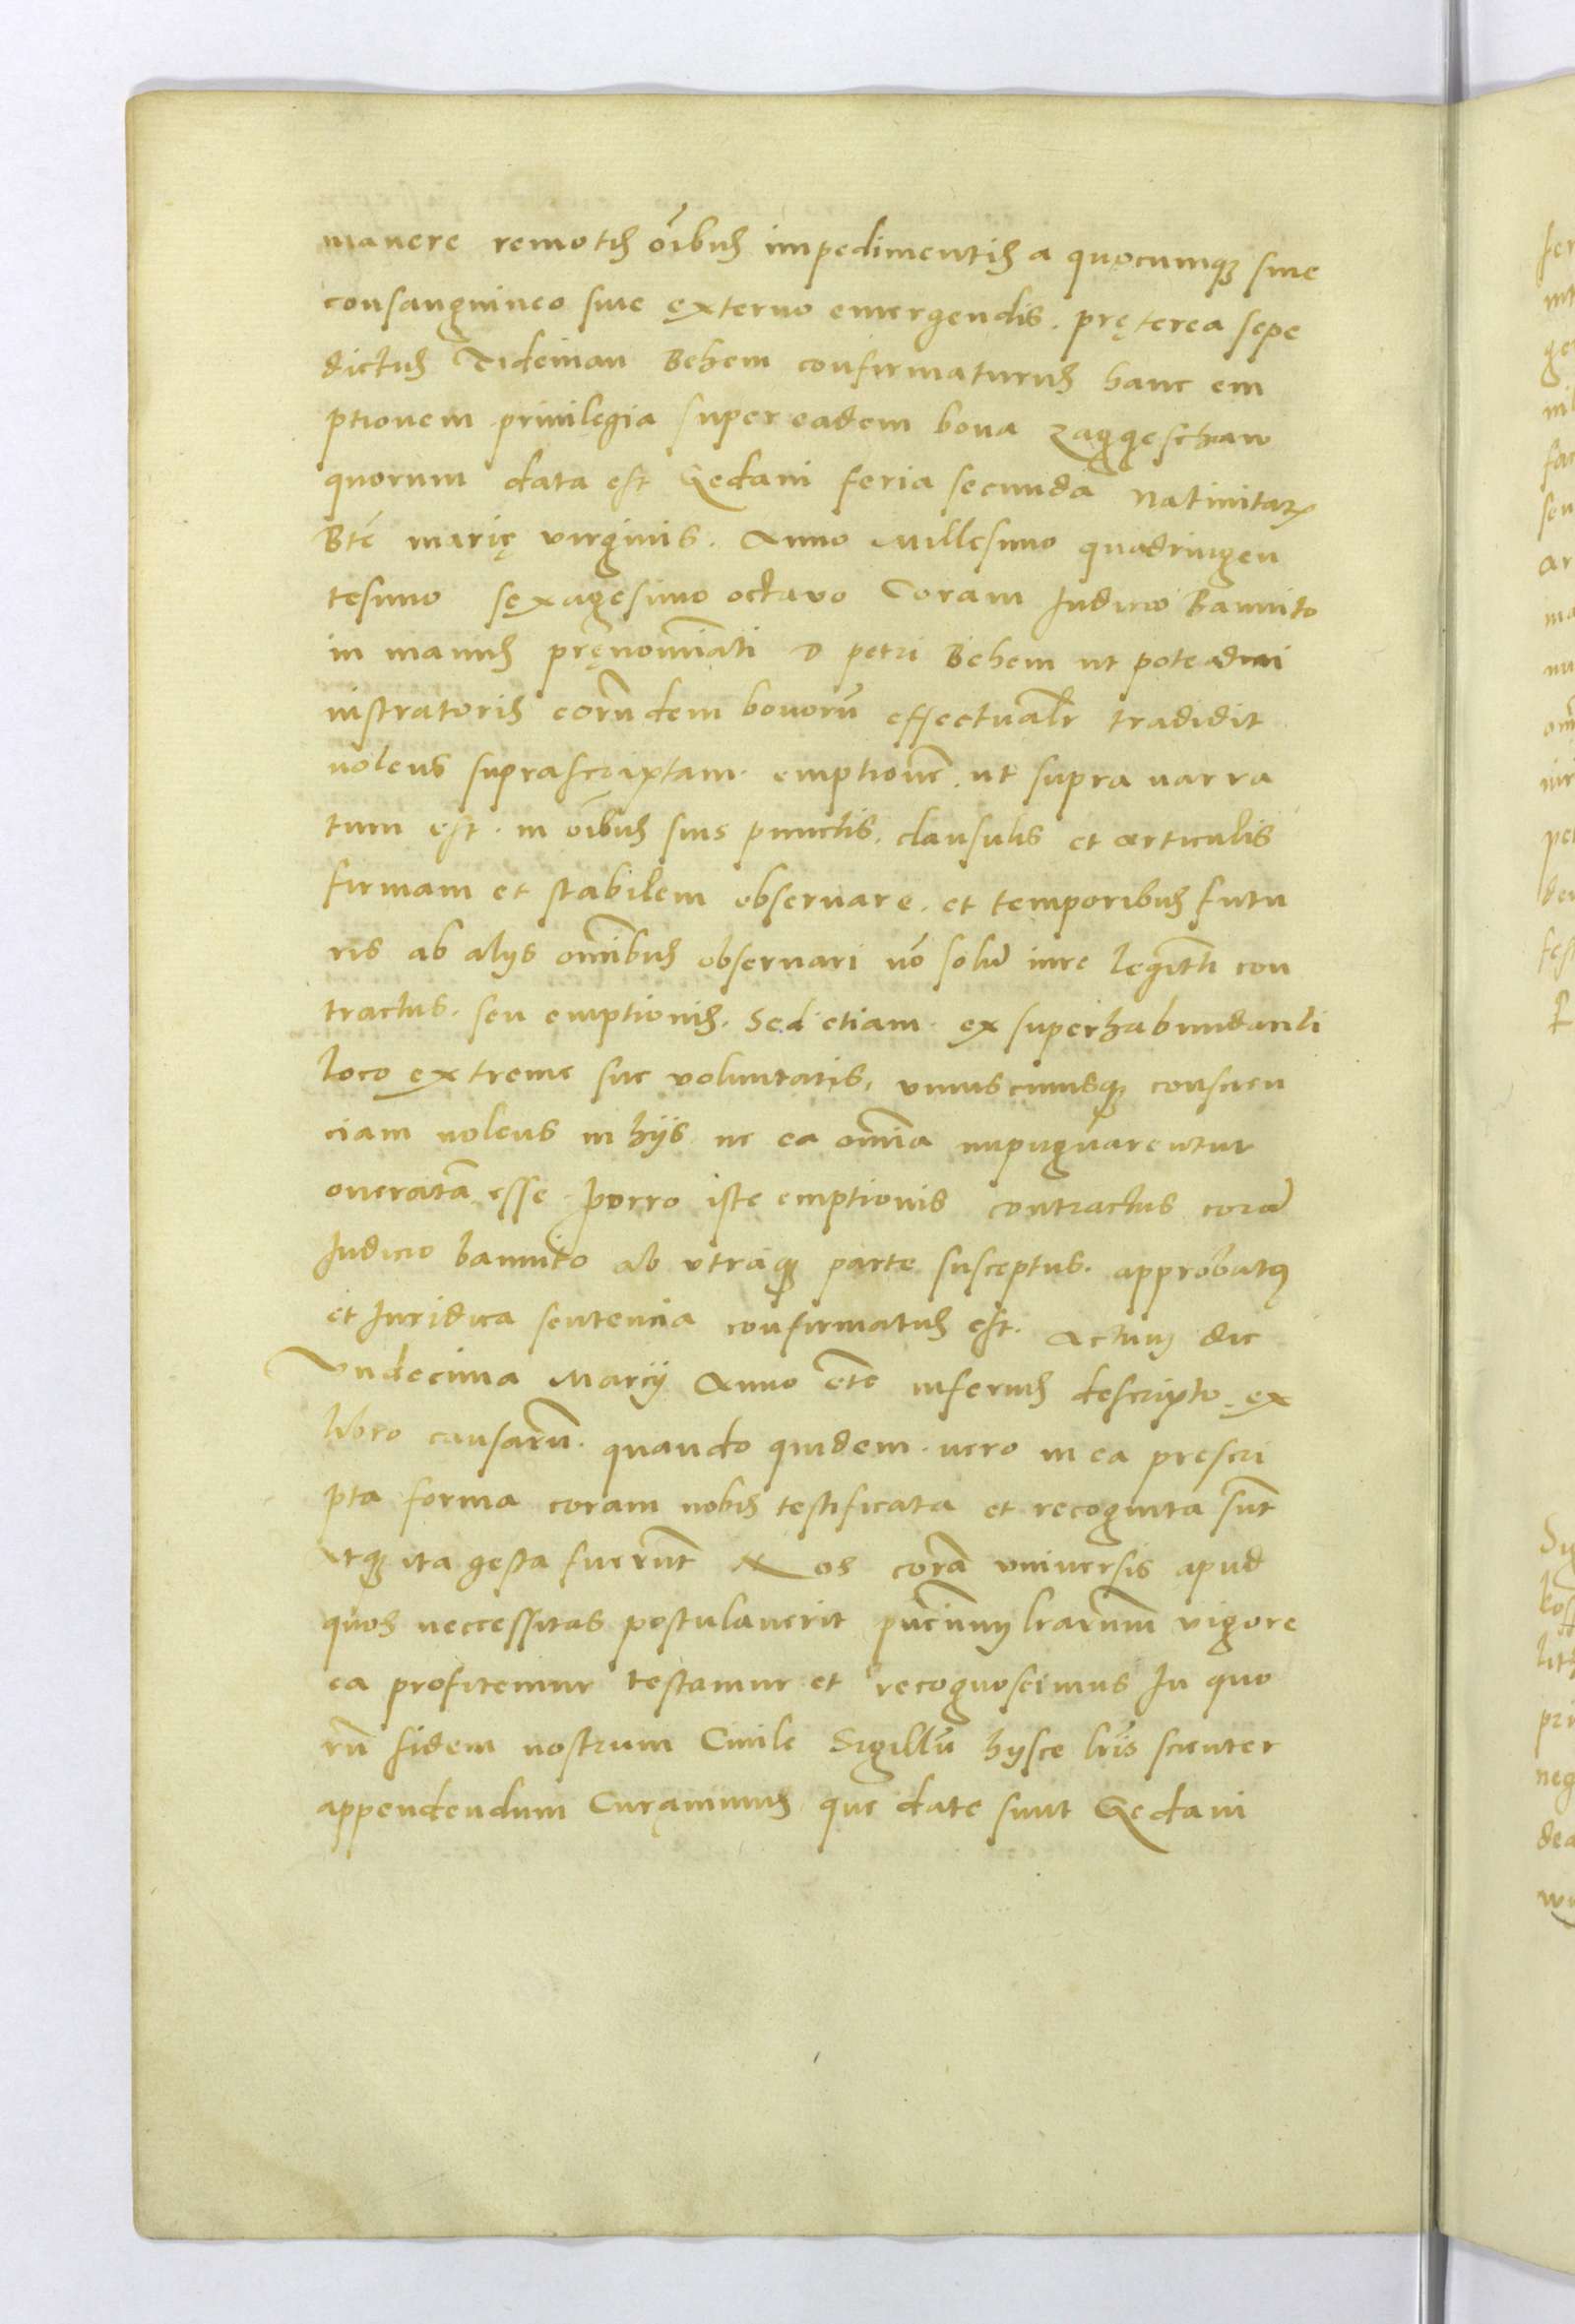 manere remotis oı̃bus impedimentis a quocumqꝫ siue
consanguineo siue externo emergendis. pręterea sepe
dictus Tideman Behem confirmaturus hanc em
ptionem priuilegia super eadem bona zaggeschaw
quorum data est Gedani feria secunda Natiuitatꝭ
Btẽ marię virginis. Anno Millesimo quadringen
tesimo sexagesimo octavo Coram Iudicio Bannito
in manus pręnomĩati D petri Behem ut pote admi
nistratoris eorũdem bonorũ effectualr̃ tradidit
volens suprascriptam. emptionẽ. ut supra narra
tum est. in oı̃bus suis punctis. clausulis et articulis
firmam et stabilem obseruare. et temporibus futu
ris ab alijs om̃ibus obseruari nõ solũ iure legittĩ con
tractus. seu emptionis. Sed etiam. ex superhabundanti
loco extreme sue voluntatis, vniuscuiusqꝫ conscien
ciam volens in hijs ne ea om̃ia inpugnarentur
oneratã esse. Porro iste emptionis contractus corã
Iudicio bannito ab vtraqꝫ parte susceptus. approbatꝯ
et Iuridica sentencia confirmatus est. Actum die
Vndecima Marcij Anno etc̃ inferius descripto. ex
libro causarũ. quando quidem. vero in ea prescri
pta forma coram nobis testificata et recognita sũt
Atqꝫ ita gesta fuerũt Nos corã vniuersis apud
quos neccessitas postulauerit pñcium lr̃arum vigore
ea profitemur testamur et recognoscimus In quo
rũ fidem nostrum Ciuile Sigillũ hijsce lr̃is scienter
appendendum Curauimus que date sunt Gedani